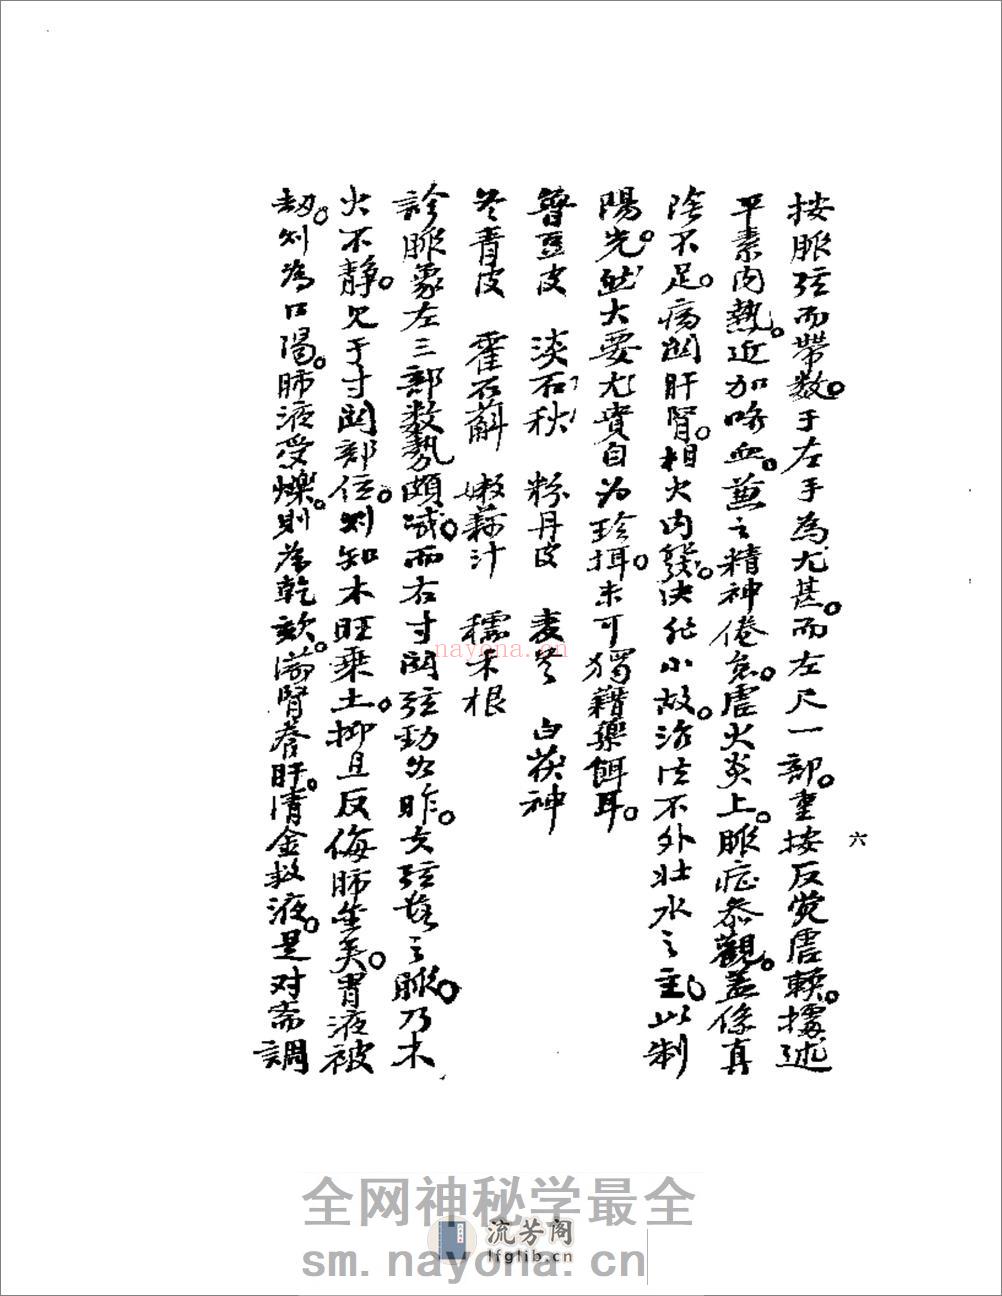 六
按脈弦而帶數。于左手為尤甚。而左尺一部。重按反覺虛軟。據述
平素內熱。近加咯血。兼之精神倦怠。虛火炎上。脈症參觀。蓋係真
陰不足。病関肝腎。相火內發。決非小故。治法不外壯水之主。以制
陽光。然大要尤貴自为珍摂。未可獨藉藥餌耳。
豆皮 淡石 粉丹皮 麦冬 白茯神
冬青皮 霍石斛 嫩藕汁 糯禾根
診脈象左三部数勢頗減。而右寸関弦勁如昨。夫弦者之脈。乃木
火不静。見于寸関部位。則知木旺乘土。抑且反侮肺金矣。胃液被
劫。則為口渴。肺液受爍。則為乾欬。滋腎養肝。清金救液。是对
調
nayona.cn
全网神秘学最全
流芳阁
lfglib.cn
sm.nayona.cn